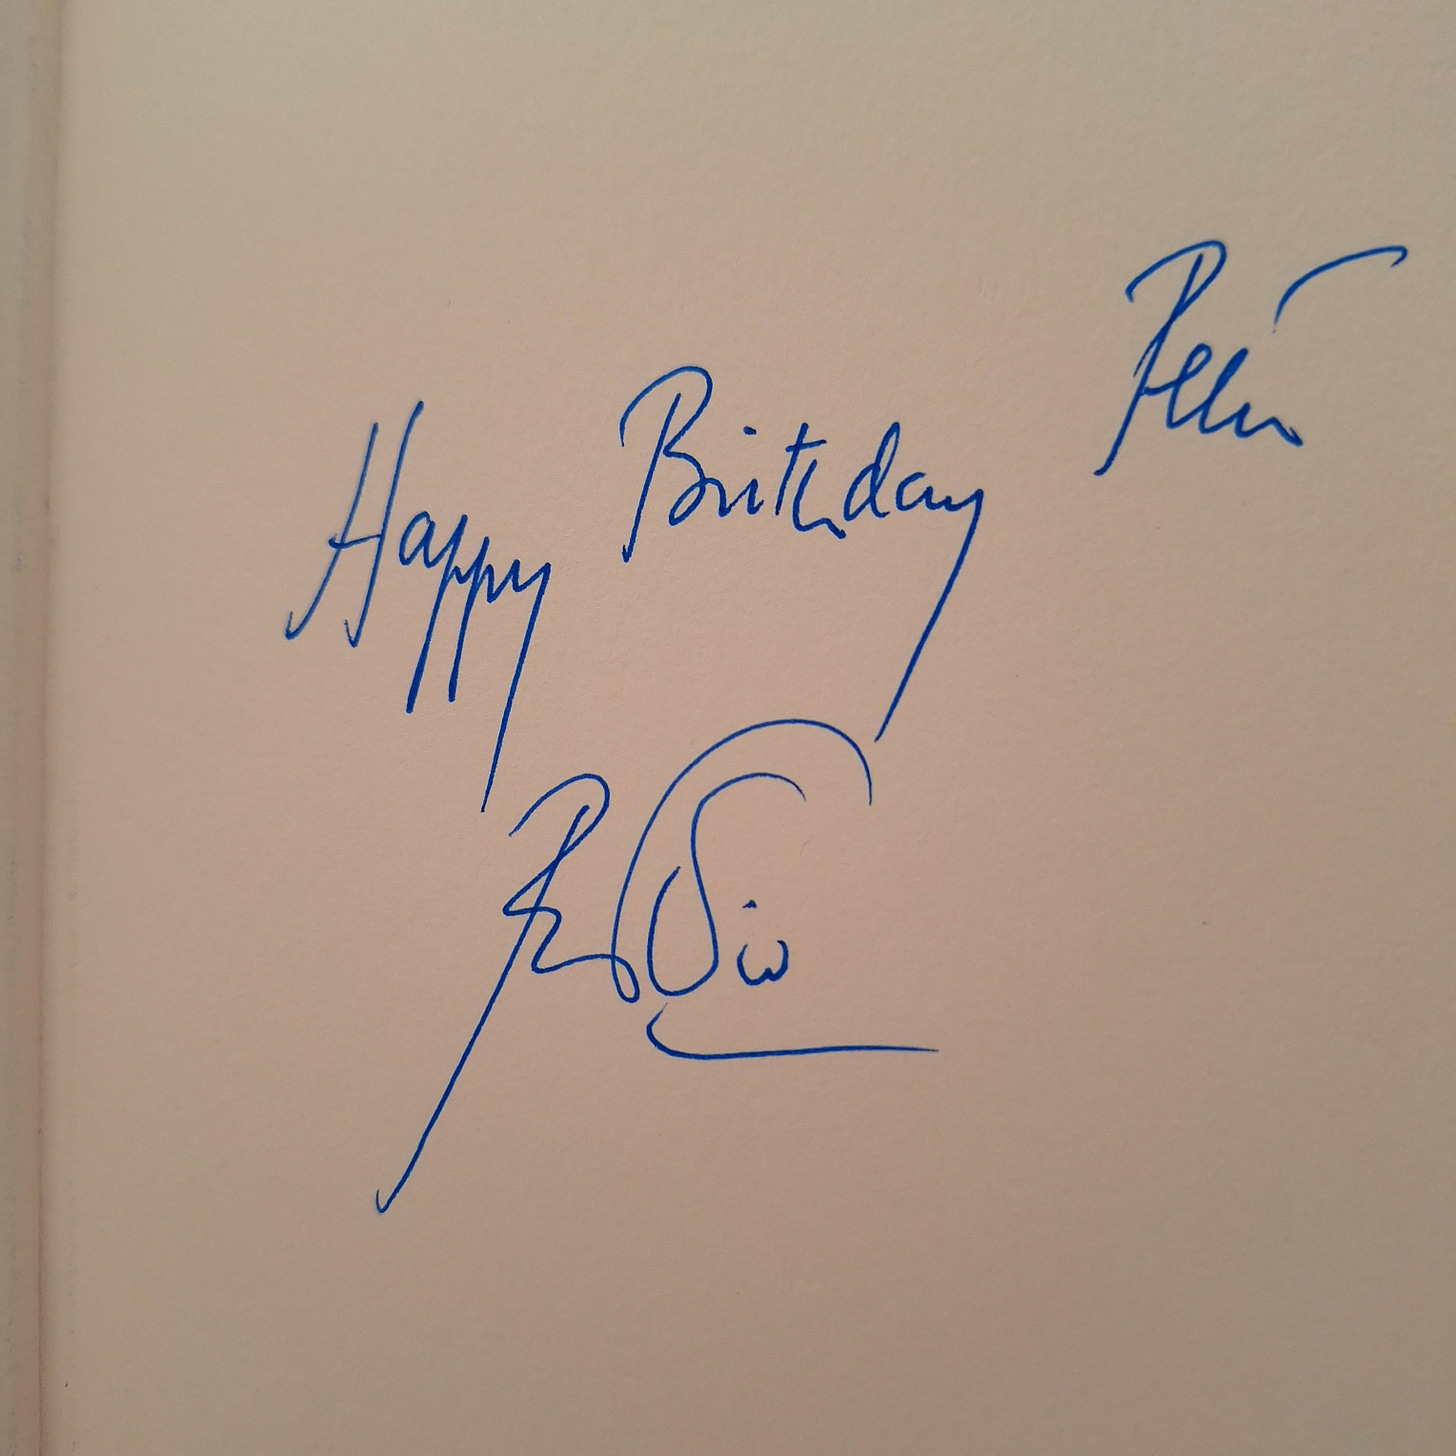 Happy Birthday Peter